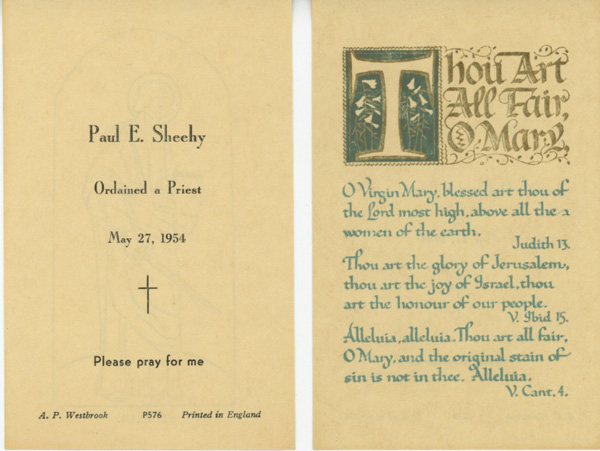 Paul E. Sheehy
Ordained a Priest
May 27, 1954
Please pray for me
A. P. Westbrook P576 Printed in England
Thou Art
All Fair,
O Mary,
O Virgin Mary, blessed art thou of
the Lord most high, above all the
women of the earth.
Judith 13.
Thou art the glory of Jerusalem,
thou art the joy of Israel, thou
art the honour of our people.
V. Ibid 15.
Alleluia, alleluia. Thou art all fair,
O Mary, and the original stain of
sin is not in thee. Alleluia.
V. Cant. 4.